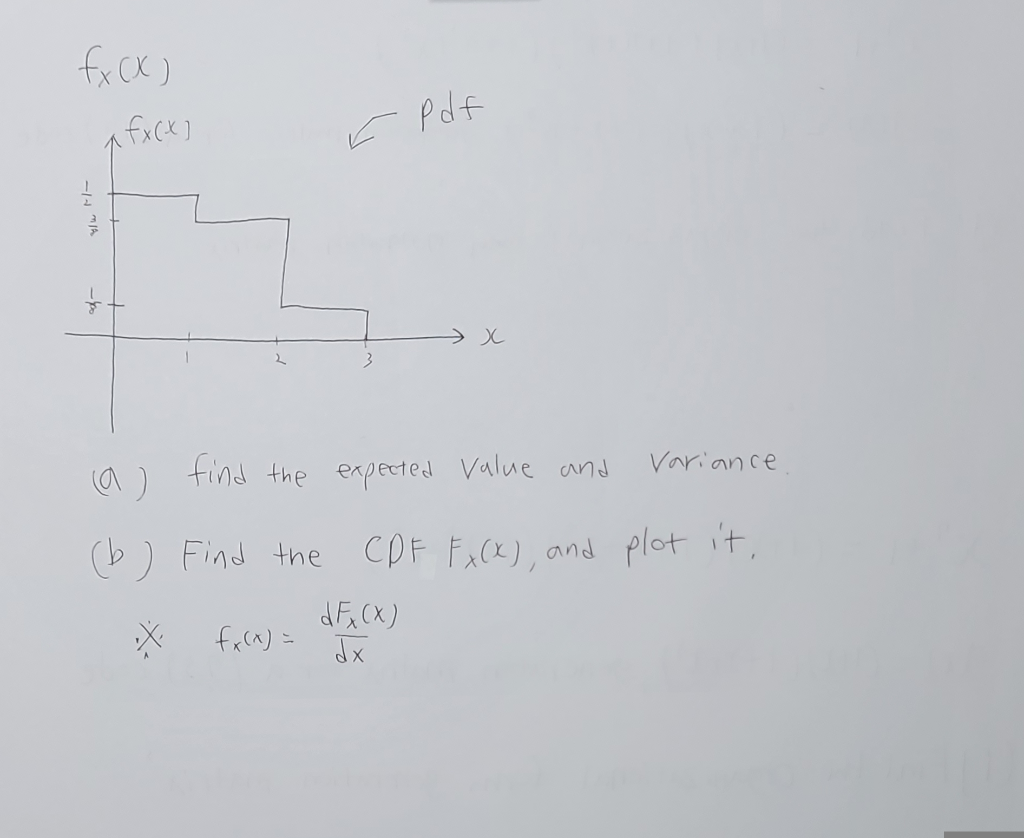 fx(x)
pdf
fx(x)
1/2
3/8
1/8
x
1 2 3
(a) find the expected value and variance.
(b) Find the CDF Fx(x), and plot it.
※ fx(x) = dFx(x)/dx